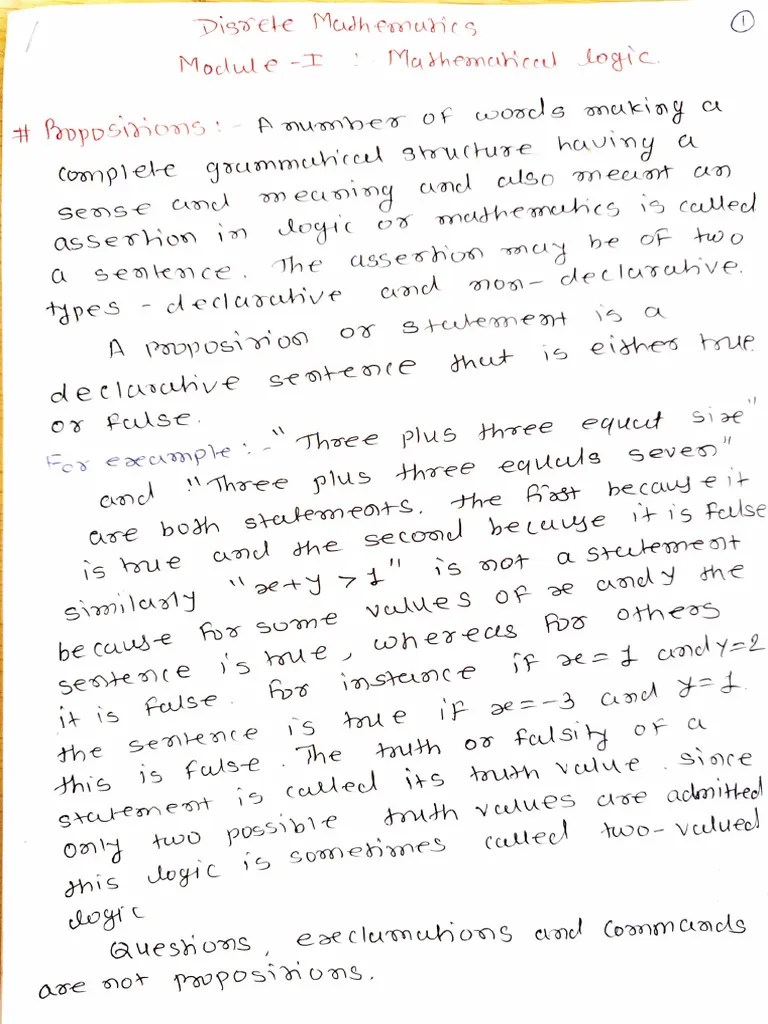 ①
Disrete Mathematics
Module-I : Mathematical logic.
# Propositions:- A number of words making a
complete grammatical structure having a
sense and meaning and also meant an
assertion in logic or mathematics is called
a sentence. The assertion may be of two
types - declarative and non-declarative.
A proposition or statement is a
declarative sentence that is either true
or false.
For example:- "Three plus three equal six"
and "Three plus three equals seven"
are both statements. The first because it
is true and the second because it is false
similarly "x+y > 1" is not a statement
because for some values of x and y the
sentence is true, whereas for others
it is false. For instance if x=1 and y=2
the sentence is true if x=-3 and y=1
this is false. The truth or falsity of a
statement is called its truth value. since
only two possible truth values are admitted
this logic is sometimes called two-valued
logic
Questions, exclamations and commands
are not propositions.